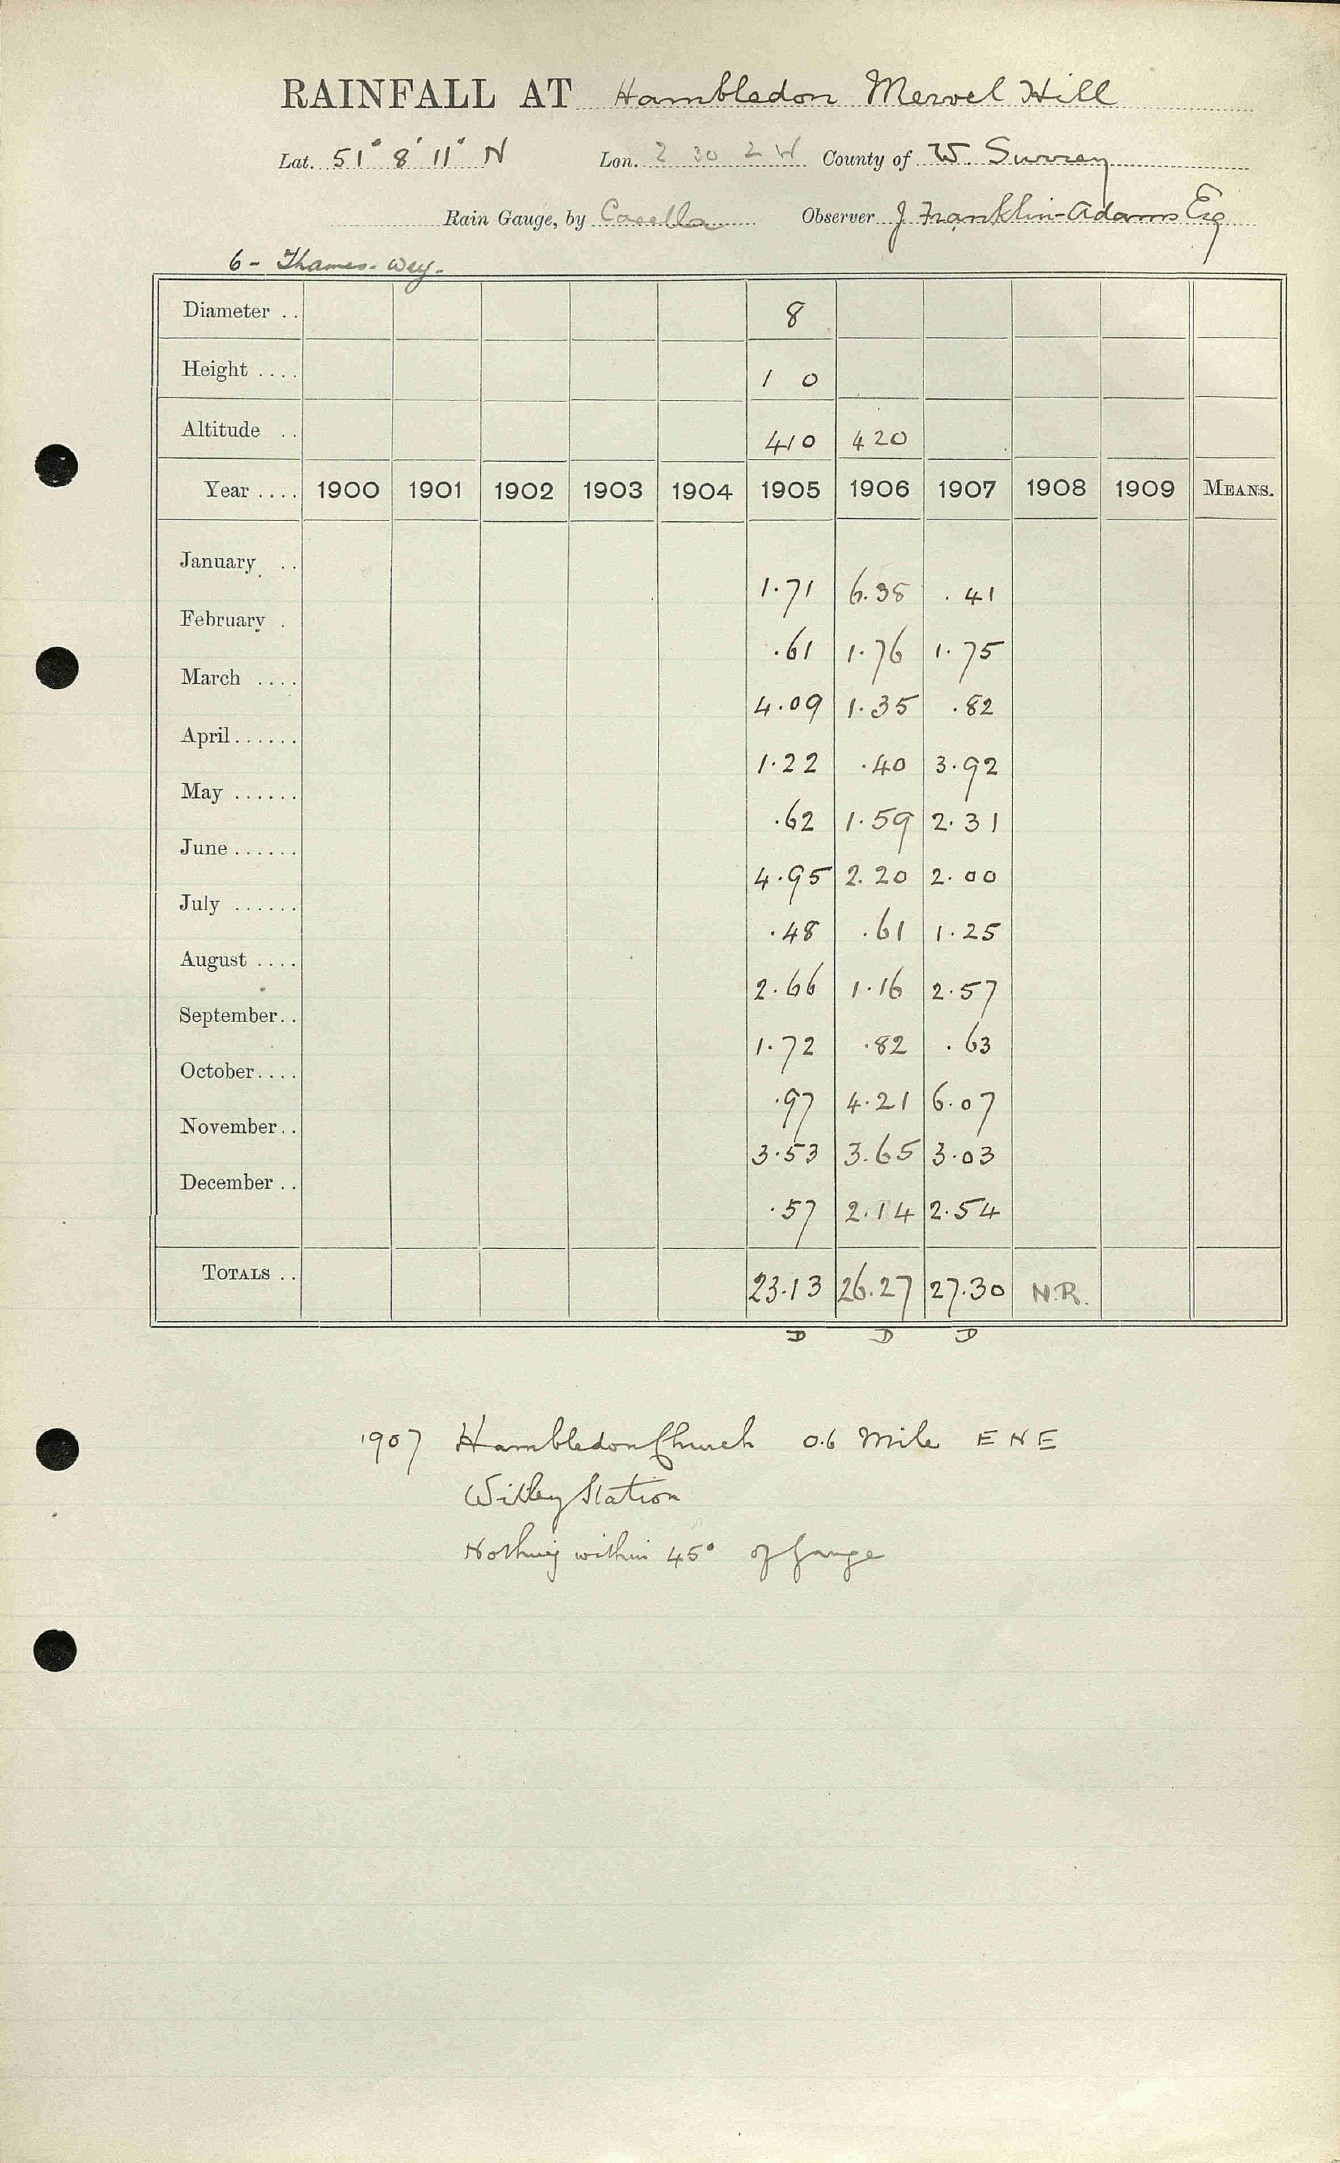 RAINFALL AT Hambledon Mervel Hill
Lat. 51° 8' 11" N Lon. 2 30 2 W County of W. Surrey
Rain Gauge, by Casella Observer J Franklin-Adams Esq
6 - Thames - Wey -
Diameter .. 8
Height .... 1 0
Altitude .. 410 420
Year .... 1900 1901 1902 1903 1904 1905 1906 1907 1908 1909 MEANS.
January .. 1.71 6.38 .41
February . .61 1.76 1.75
March .... 4.09 1.35 .82
April ...... 1.22 .40 3.92
May ...... .62 1.59 2.31
June ...... 4.95 2.20 2.00
July ...... .48 .61 1.25
August .... 2.66 1.16 2.57
September.. 1.72 .82 .63
October.... .97 4.21 6.07
November.. 3.53 3.65 3.03
December .. .57 2.14 2.54
TOTALS .. 23.13 26.27 27.30 N.R.
D D D
1907 Hambledon Church 0.6 Mile E N E
Witley Station
Nothing within 45° of gauge